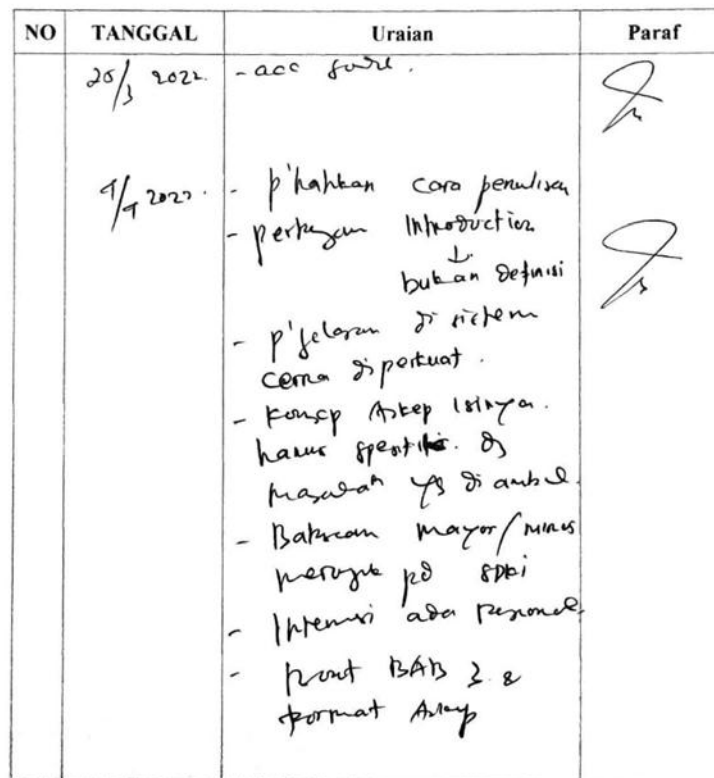 NO TANGGAL Uraian Paraf
2022. - acc
2022. - p'hatikan cara penulisan
- pertajam Introduction
↓
bukan definisi
- p'jelasan di sistem
cerna diperkuat.
- Konsep Askep isinya.
harus spesifik. dg
masalah yg di ambil.
- Batasan mayor/minor
merujuk pd SDKI
- Intervensi ada rasional
- BAB 3 &
format Askep